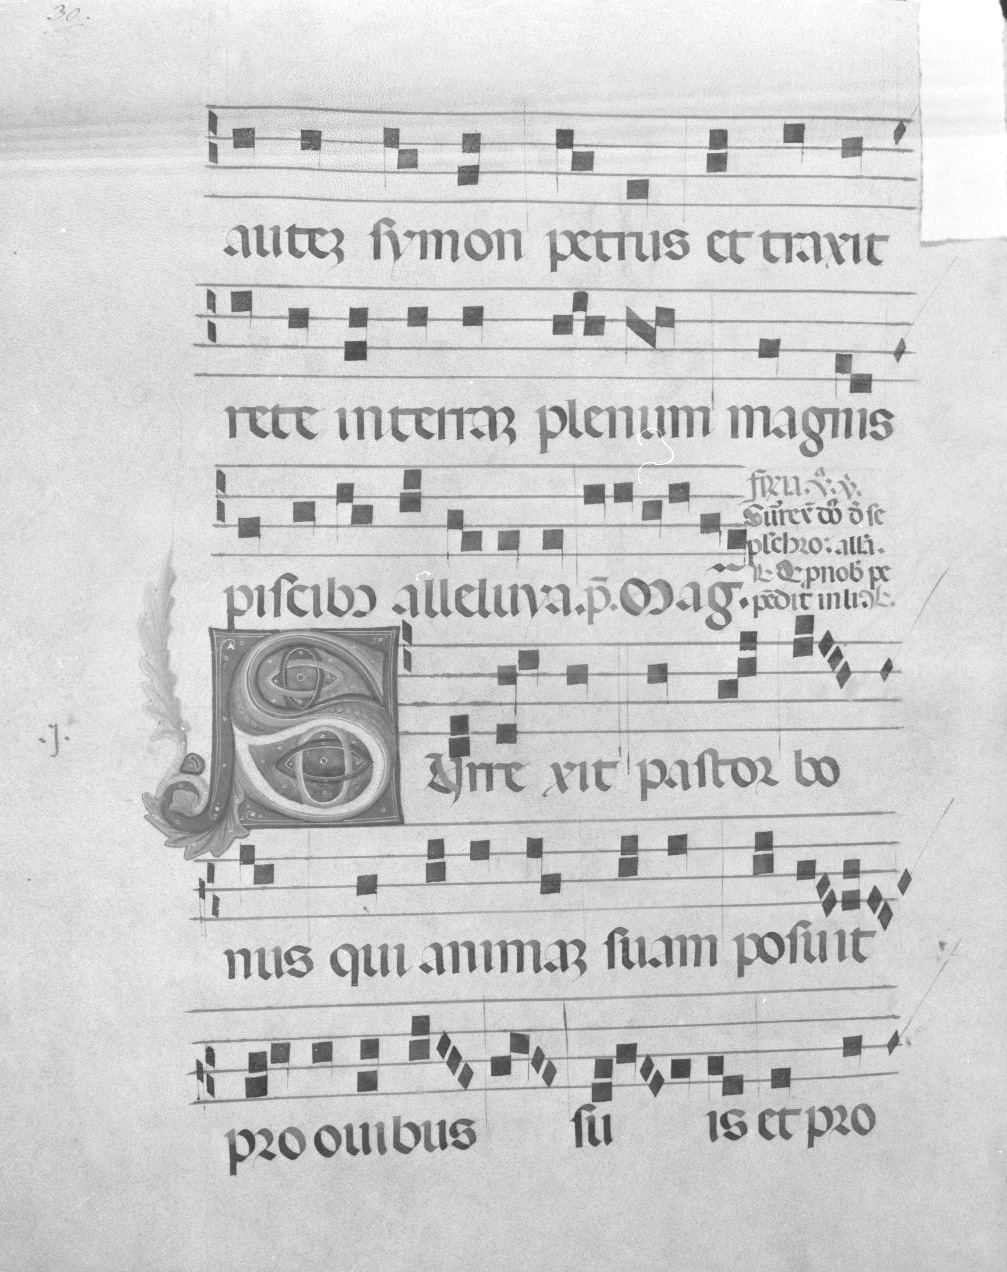 30.
autez symon petrus et traxit
rete in terraz plenum magnis
piscibꝫ alleluya. p̄. Mag̃.
feria. v̾. v̾.
Surrex̄
plchro: alla.
pnob̾ pe
pēdit in li
.j.
Surre xit pastor bo
nus qui animaz suam posuit
pro ouibus su is et pro